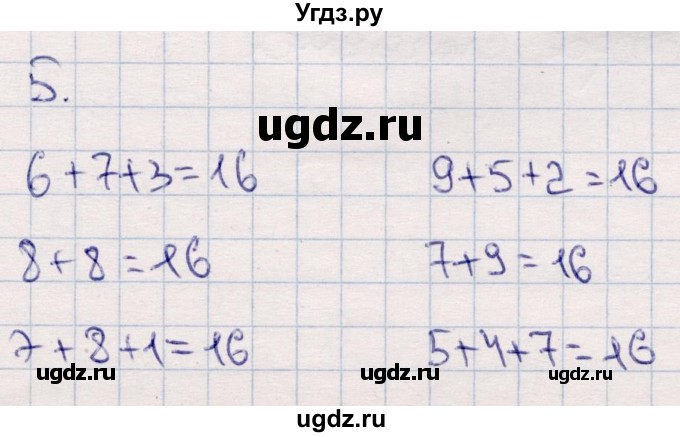 Угдз.ру
5.
ugdz.ru
6+7+3=16 9+5+2=16
8+8=16 7+9=16
7+8+1=16 5+4+7=16
ugdz.ru ugdz.ru ugdz.ru
ugdz.ru